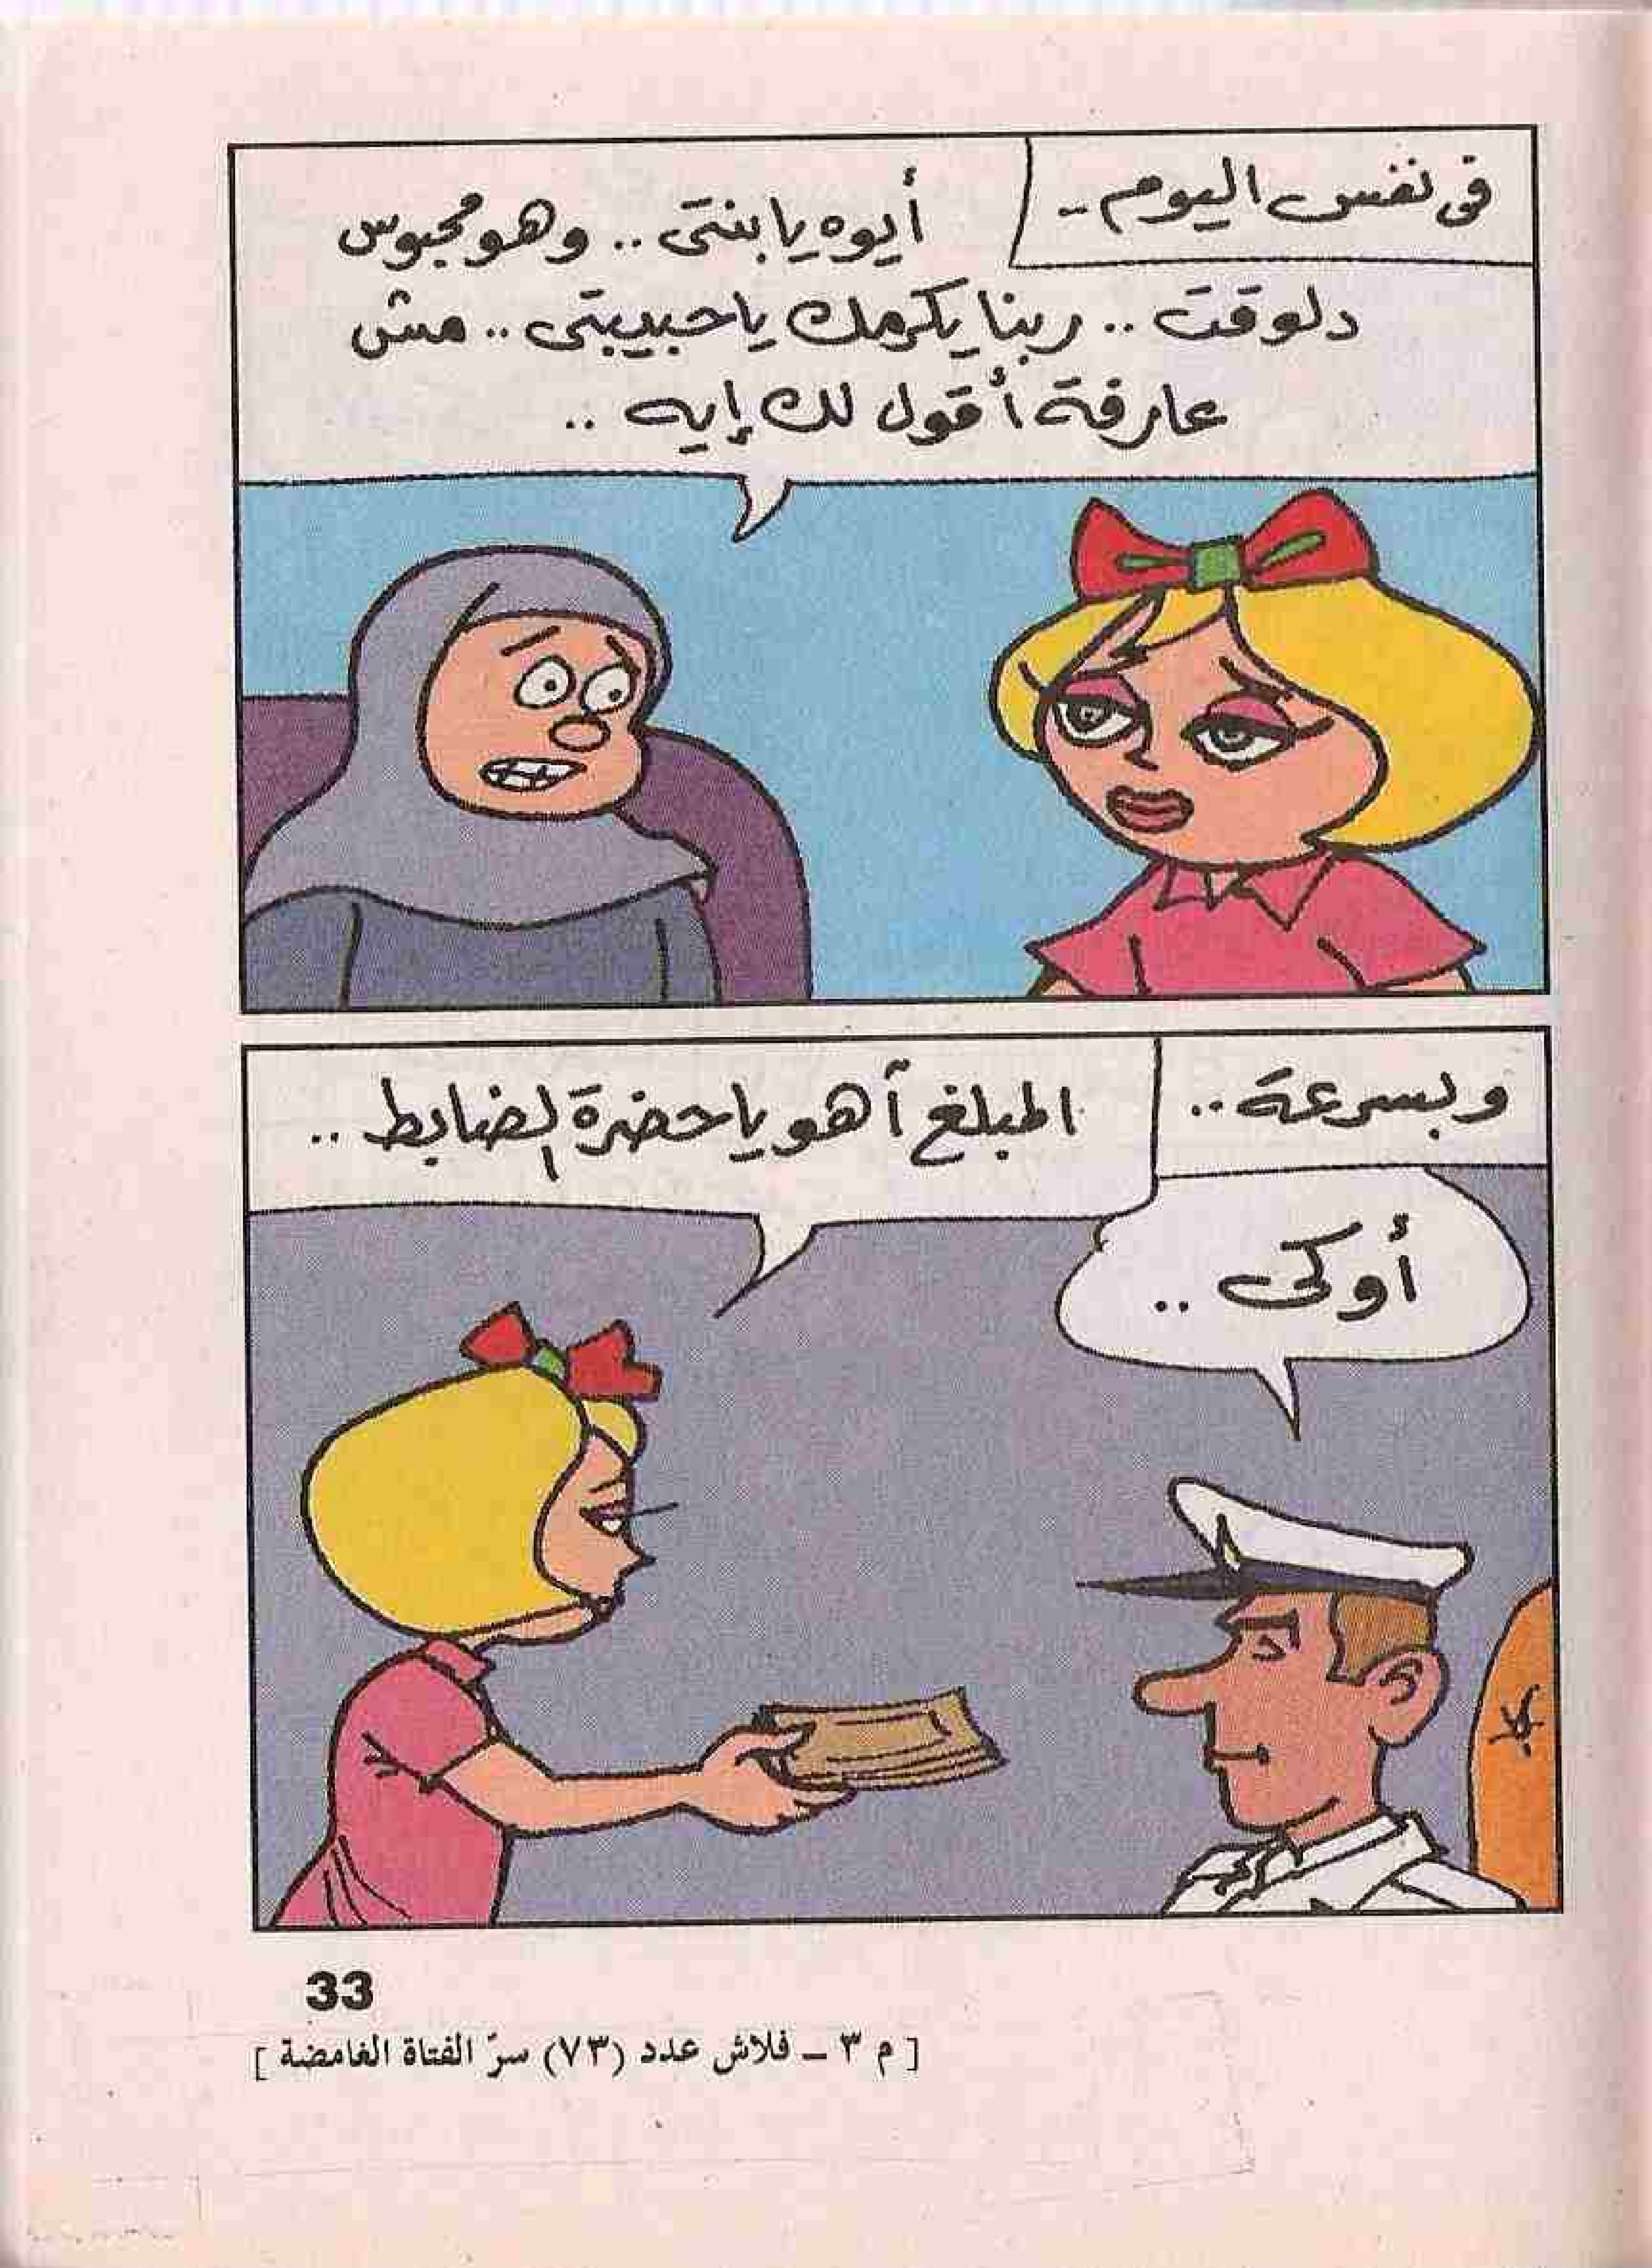 فى نفس اليوم -
أيوه يا بنتى .. وهو محبوس
دلوقت .. ربنا يكرمك يا حبيبتى .. مش
عارفة أقول لك إيه ..
وبسرعة ..
المبلغ أهو يا حضرة الضابط ..
أوكى ..
33
[ م ٣ – فلاش عدد (٧٣) سرّ الفتاة الغامضة ]